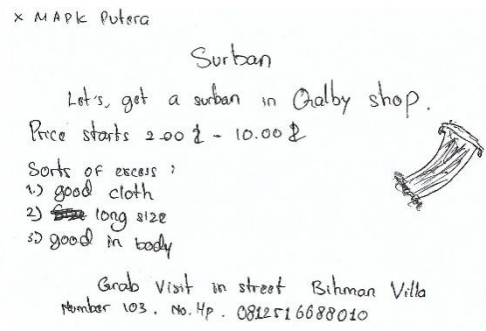 x MAPK Putera
Surban
Let's, get a surban in Qalby shop.
Price starts 2.00 $ - 10.00 $
Sorts of excess :
1.) good cloth
2) long size
3.) good in body
Grab Visit in street Bihman Villa
Number 103. No. Hp. 0812516688010